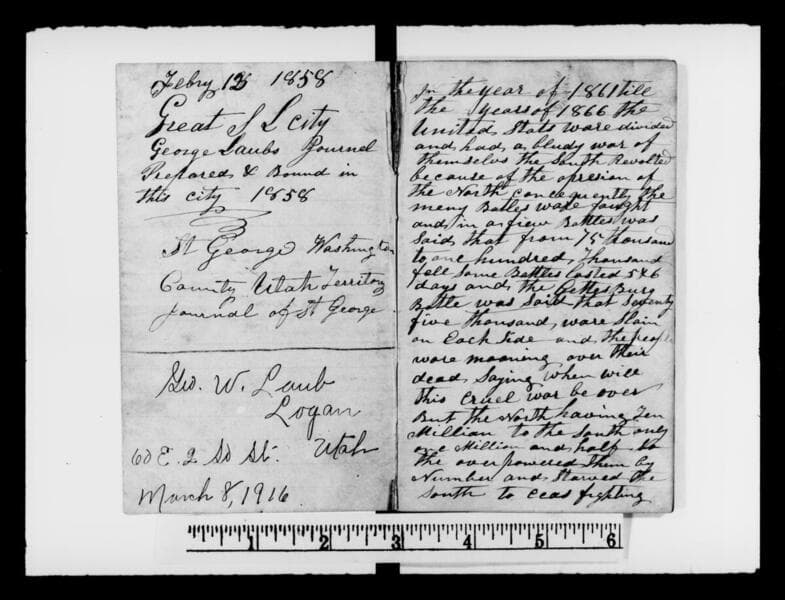 Febry 12 1858
Great S L city
George Laubs Journel
Prepared & Bound in
this city 1858
St George Washington
County Utah Territory
Journal of St George
Geo. W. Laub
Logan
60 E. 2 So St. Utah
March 8, 1916
In the year of 1861 till
the years of 1866 the
United Stats ware divided
and had a bludy war of
themselvs the South Revolted
because of the opresion of
the North concequently the
meny Batles ware faught
and in a fiew Battles was
Said that from 75 thousand
to one hundred thousand
fell Some Battles lasted 5 & 6
days and the Gettesburg
Battle was said that Seventy
five thousand, ware Slain
on Each Side and the people
ware mooning over their
dead, Saying when will
this cruel war be over
But the North having Ten
Million to the South only
one Million and half so
the overpowered them by
Number and Starved the
South to ceas fighting
1 2 3 4 5 6